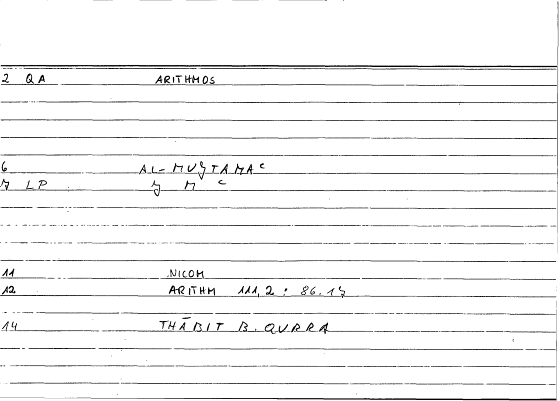 2 QA ARITHMOS
6 AL-MUǧTAMAᶜ
7 LP ǧ M ᶜ
11 NICOM
12 ARITHM 111,2 : 86.17
14 THĀBIT B. QURRA